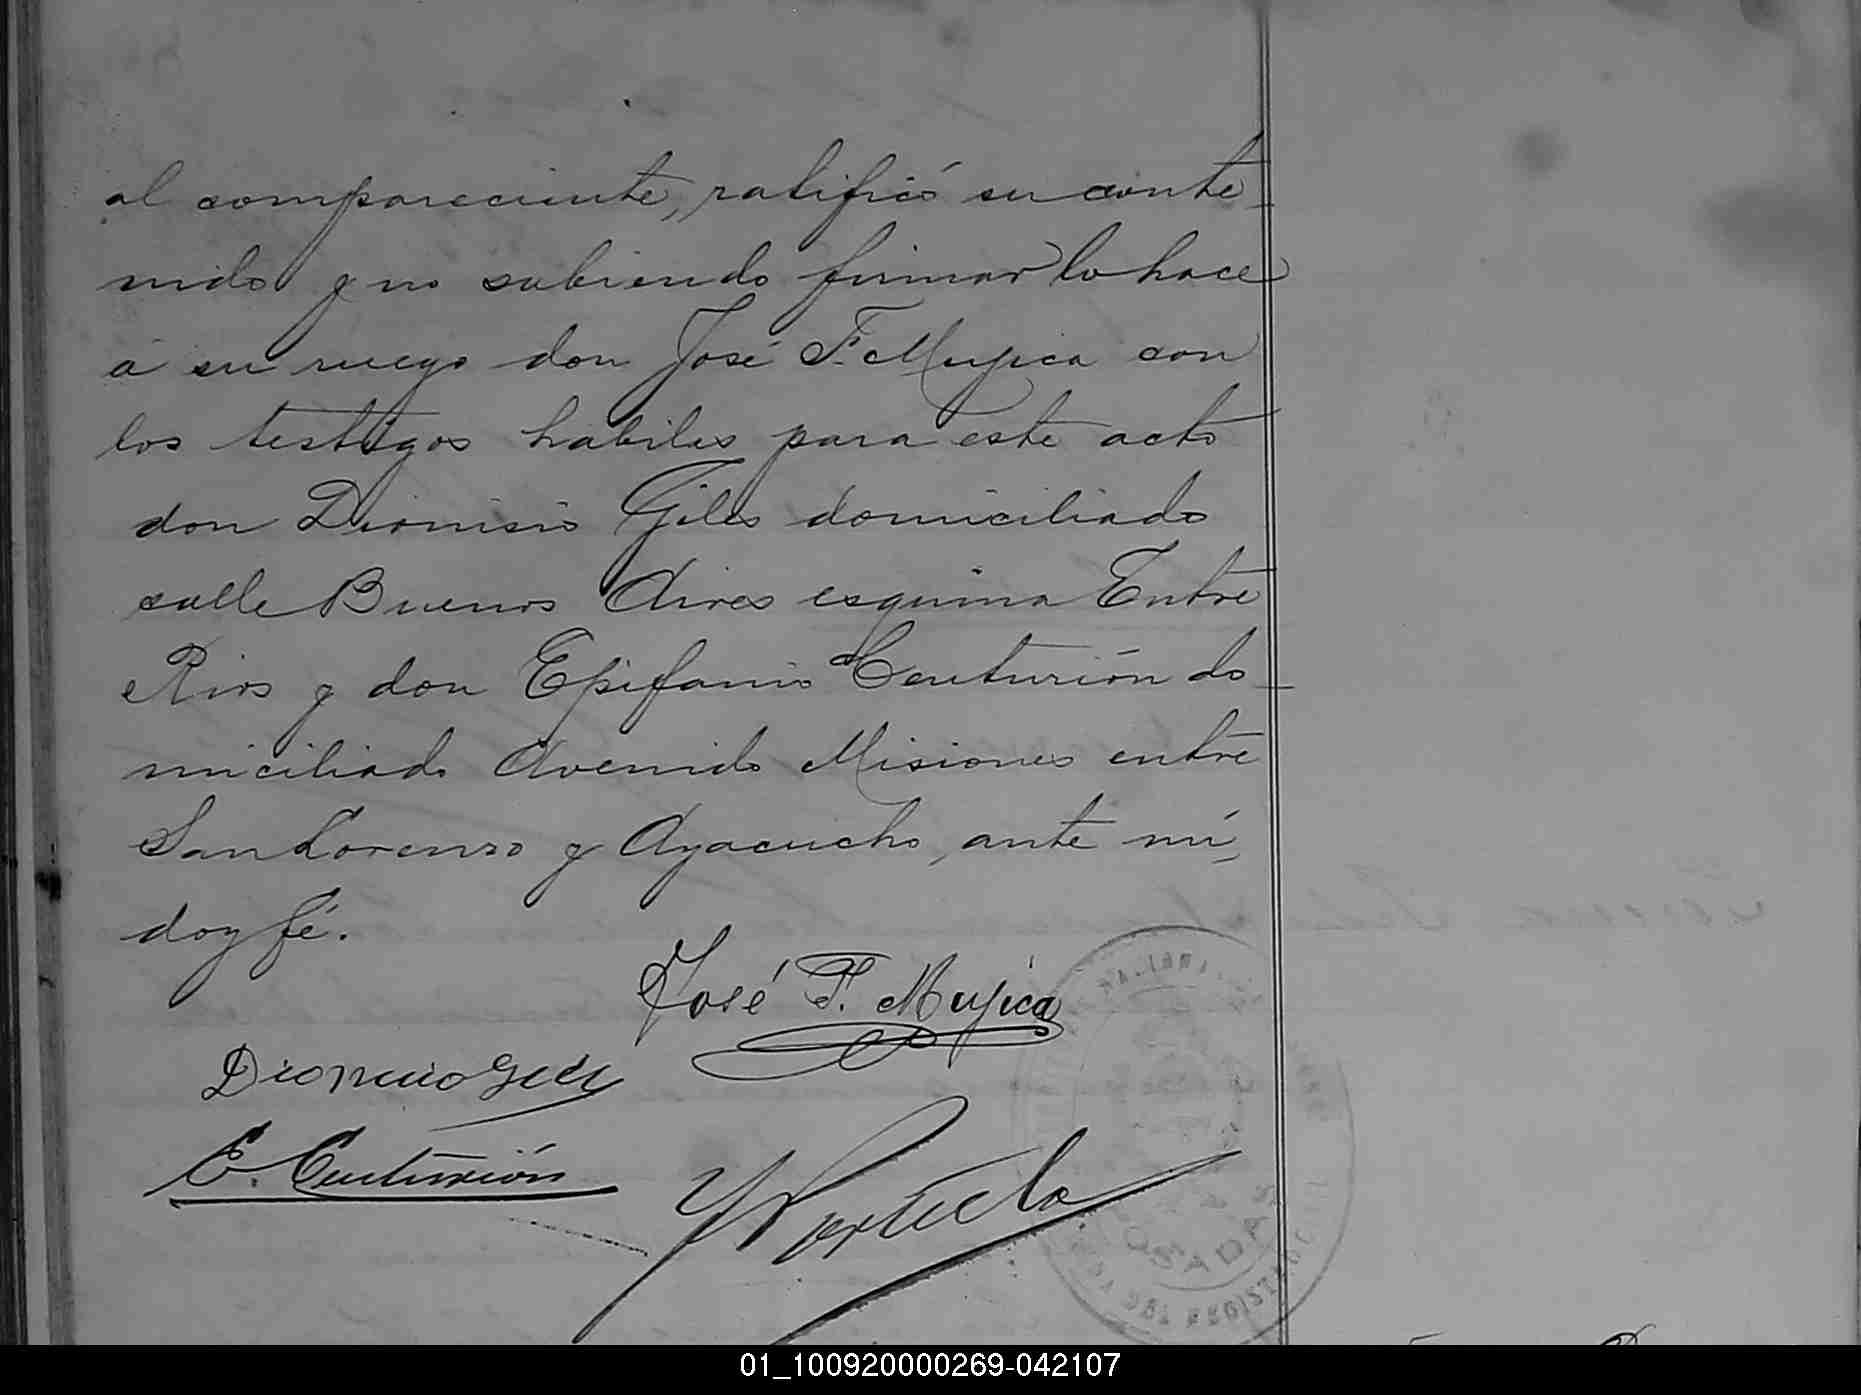 al compareciente, ratificó su conte-
nido y no sabiendo firmar lo hace
á su ruego don José F. Mujica con
los testigos habiles para este acto
don Dionisio Giles domiciliado
calle Buenos Aires esquina Entre
Rios y don Epifanio Centurión do-
miciliado Avenida Misiones entre
San Lorenzo y Ayacucho, ante mí,
doy fé.
José F. Mujica
E. Centurión
POSADAS
DEL REGISTRO CIVIL
01_100920000269-042107